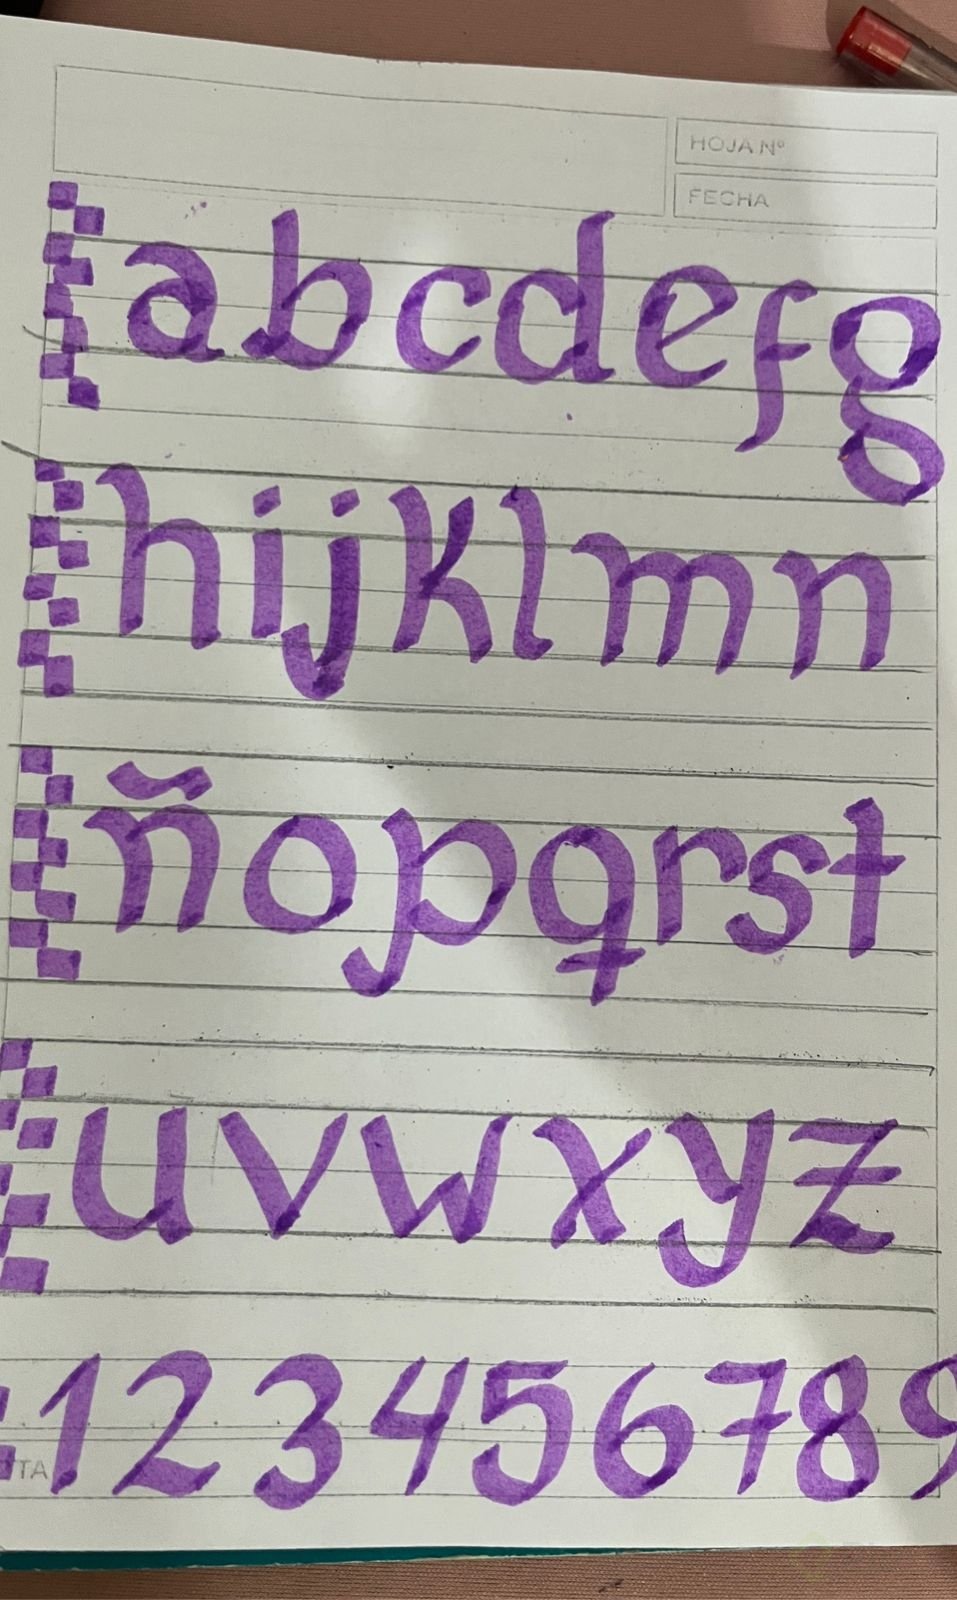 HOJA Nº
FECHA
abcdefg
hijklmn
ñopqrst
uvwxyz
123456789
TA